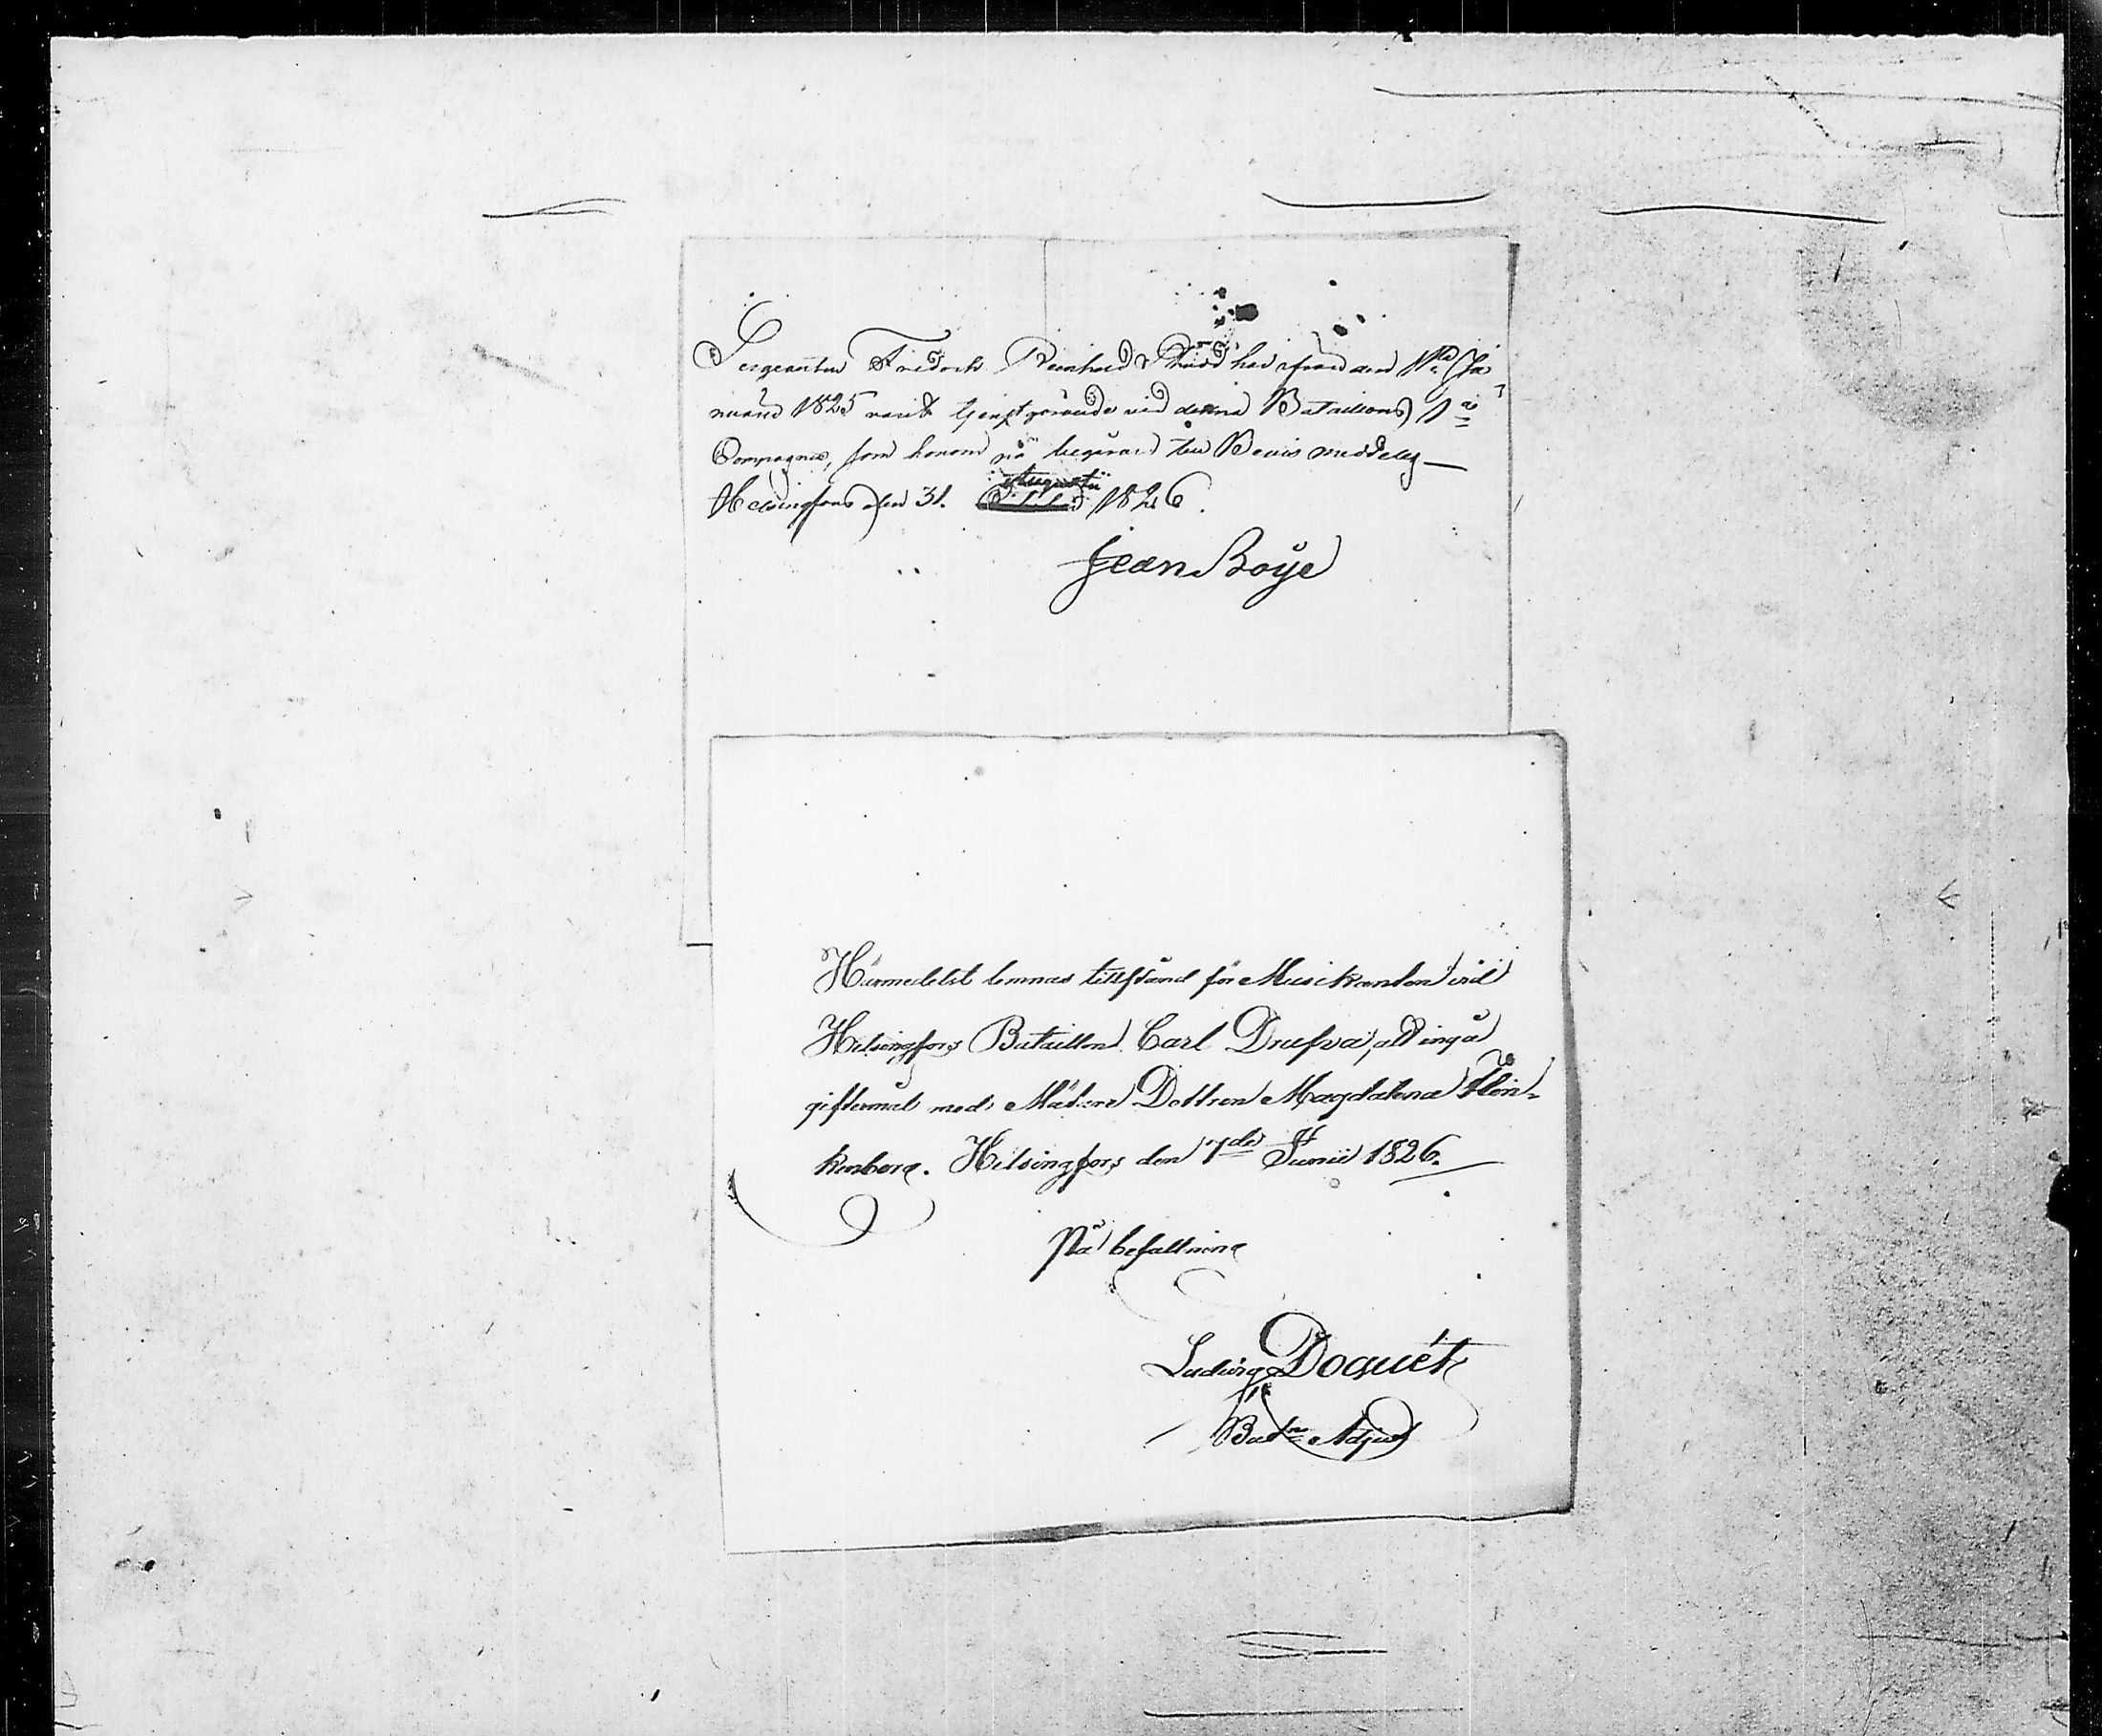 Sergeanten Fredrik Reinhold har ifrån den 1sta Ja-
nuarii 1825 varit tjenstgörande vid denna Bataillons 1a
Compagnie, som honom på begäran till Bevis meddelas
Helsingfors den 31. Augustii 1826.
Jean Boÿe
Härmedelst lemnas tillstånd för Musikanten vid
Helsingfors Bataillon Carl Drufva, att ingå
giftermål med Mätare Dottren Magdalena Flin-
kenberg. Helsingfors den 7de Junii 1826.
På befallning
Ludvig Doquét
Batns Adjut